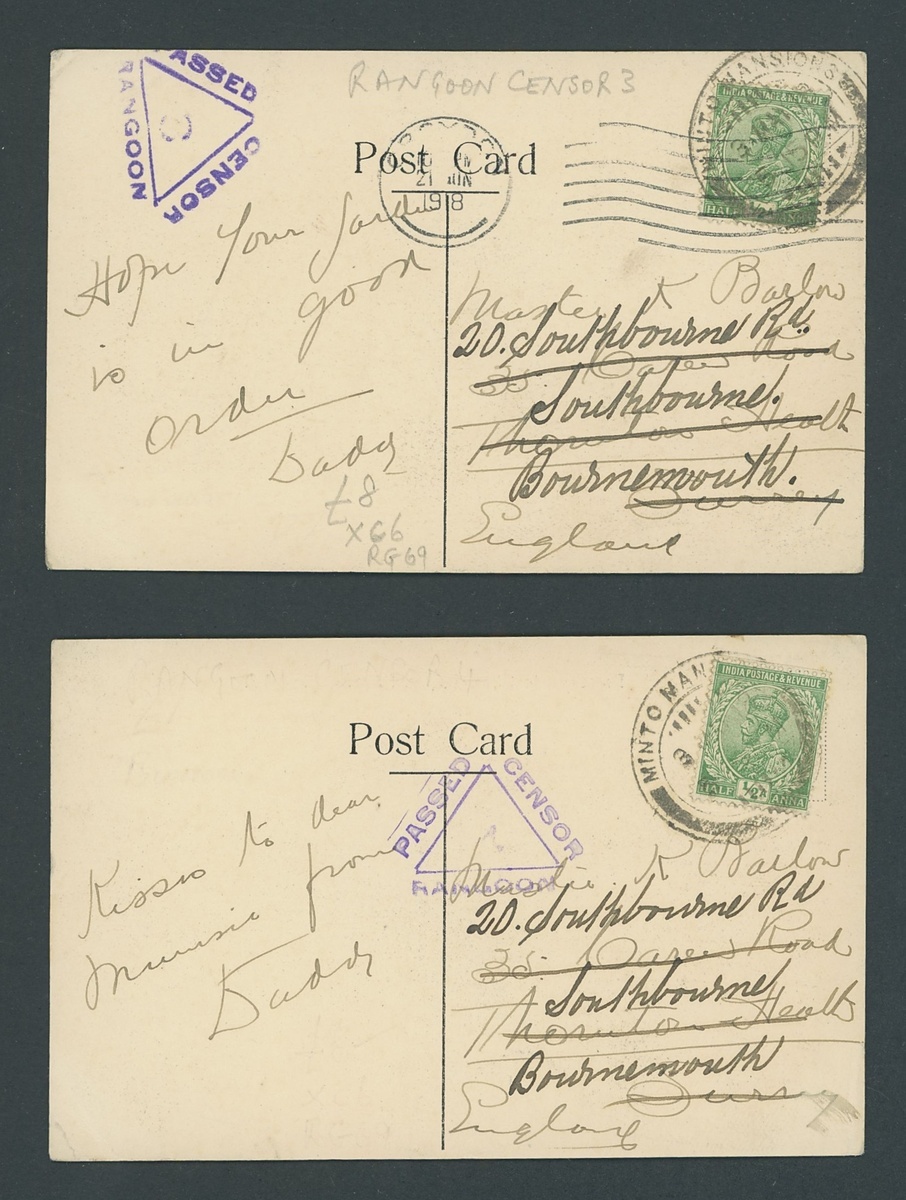 PASSED
RANGOON
CENSOR
3
RANGOON CENSOR 3
Post Card
CROYDON
21 JUN
1918
MINTO MANSIONS
INDIA POSTAGE & REVENUE
HALF ANNA
Hope your garden
is in good
order
Daddy
£8
X66
RG69
Master K Barlow
20. Southbourne Rd.
35 Carew Road
Southbourne.
Thornton Heath
Bournemouth.
Surrey
England
Post Card
PASSED
CENSOR
RANGOON
MINTO MANS
INDIA POSTAGE & REVENUE
HALF 1/2A ANNA
Kisses to dear
Mumsie from
Daddy
Master K Barlow
20. Southbourne Rd
35 Carew Road
Southbourne
Thornton Heath
Bournemouth
Surrey
England